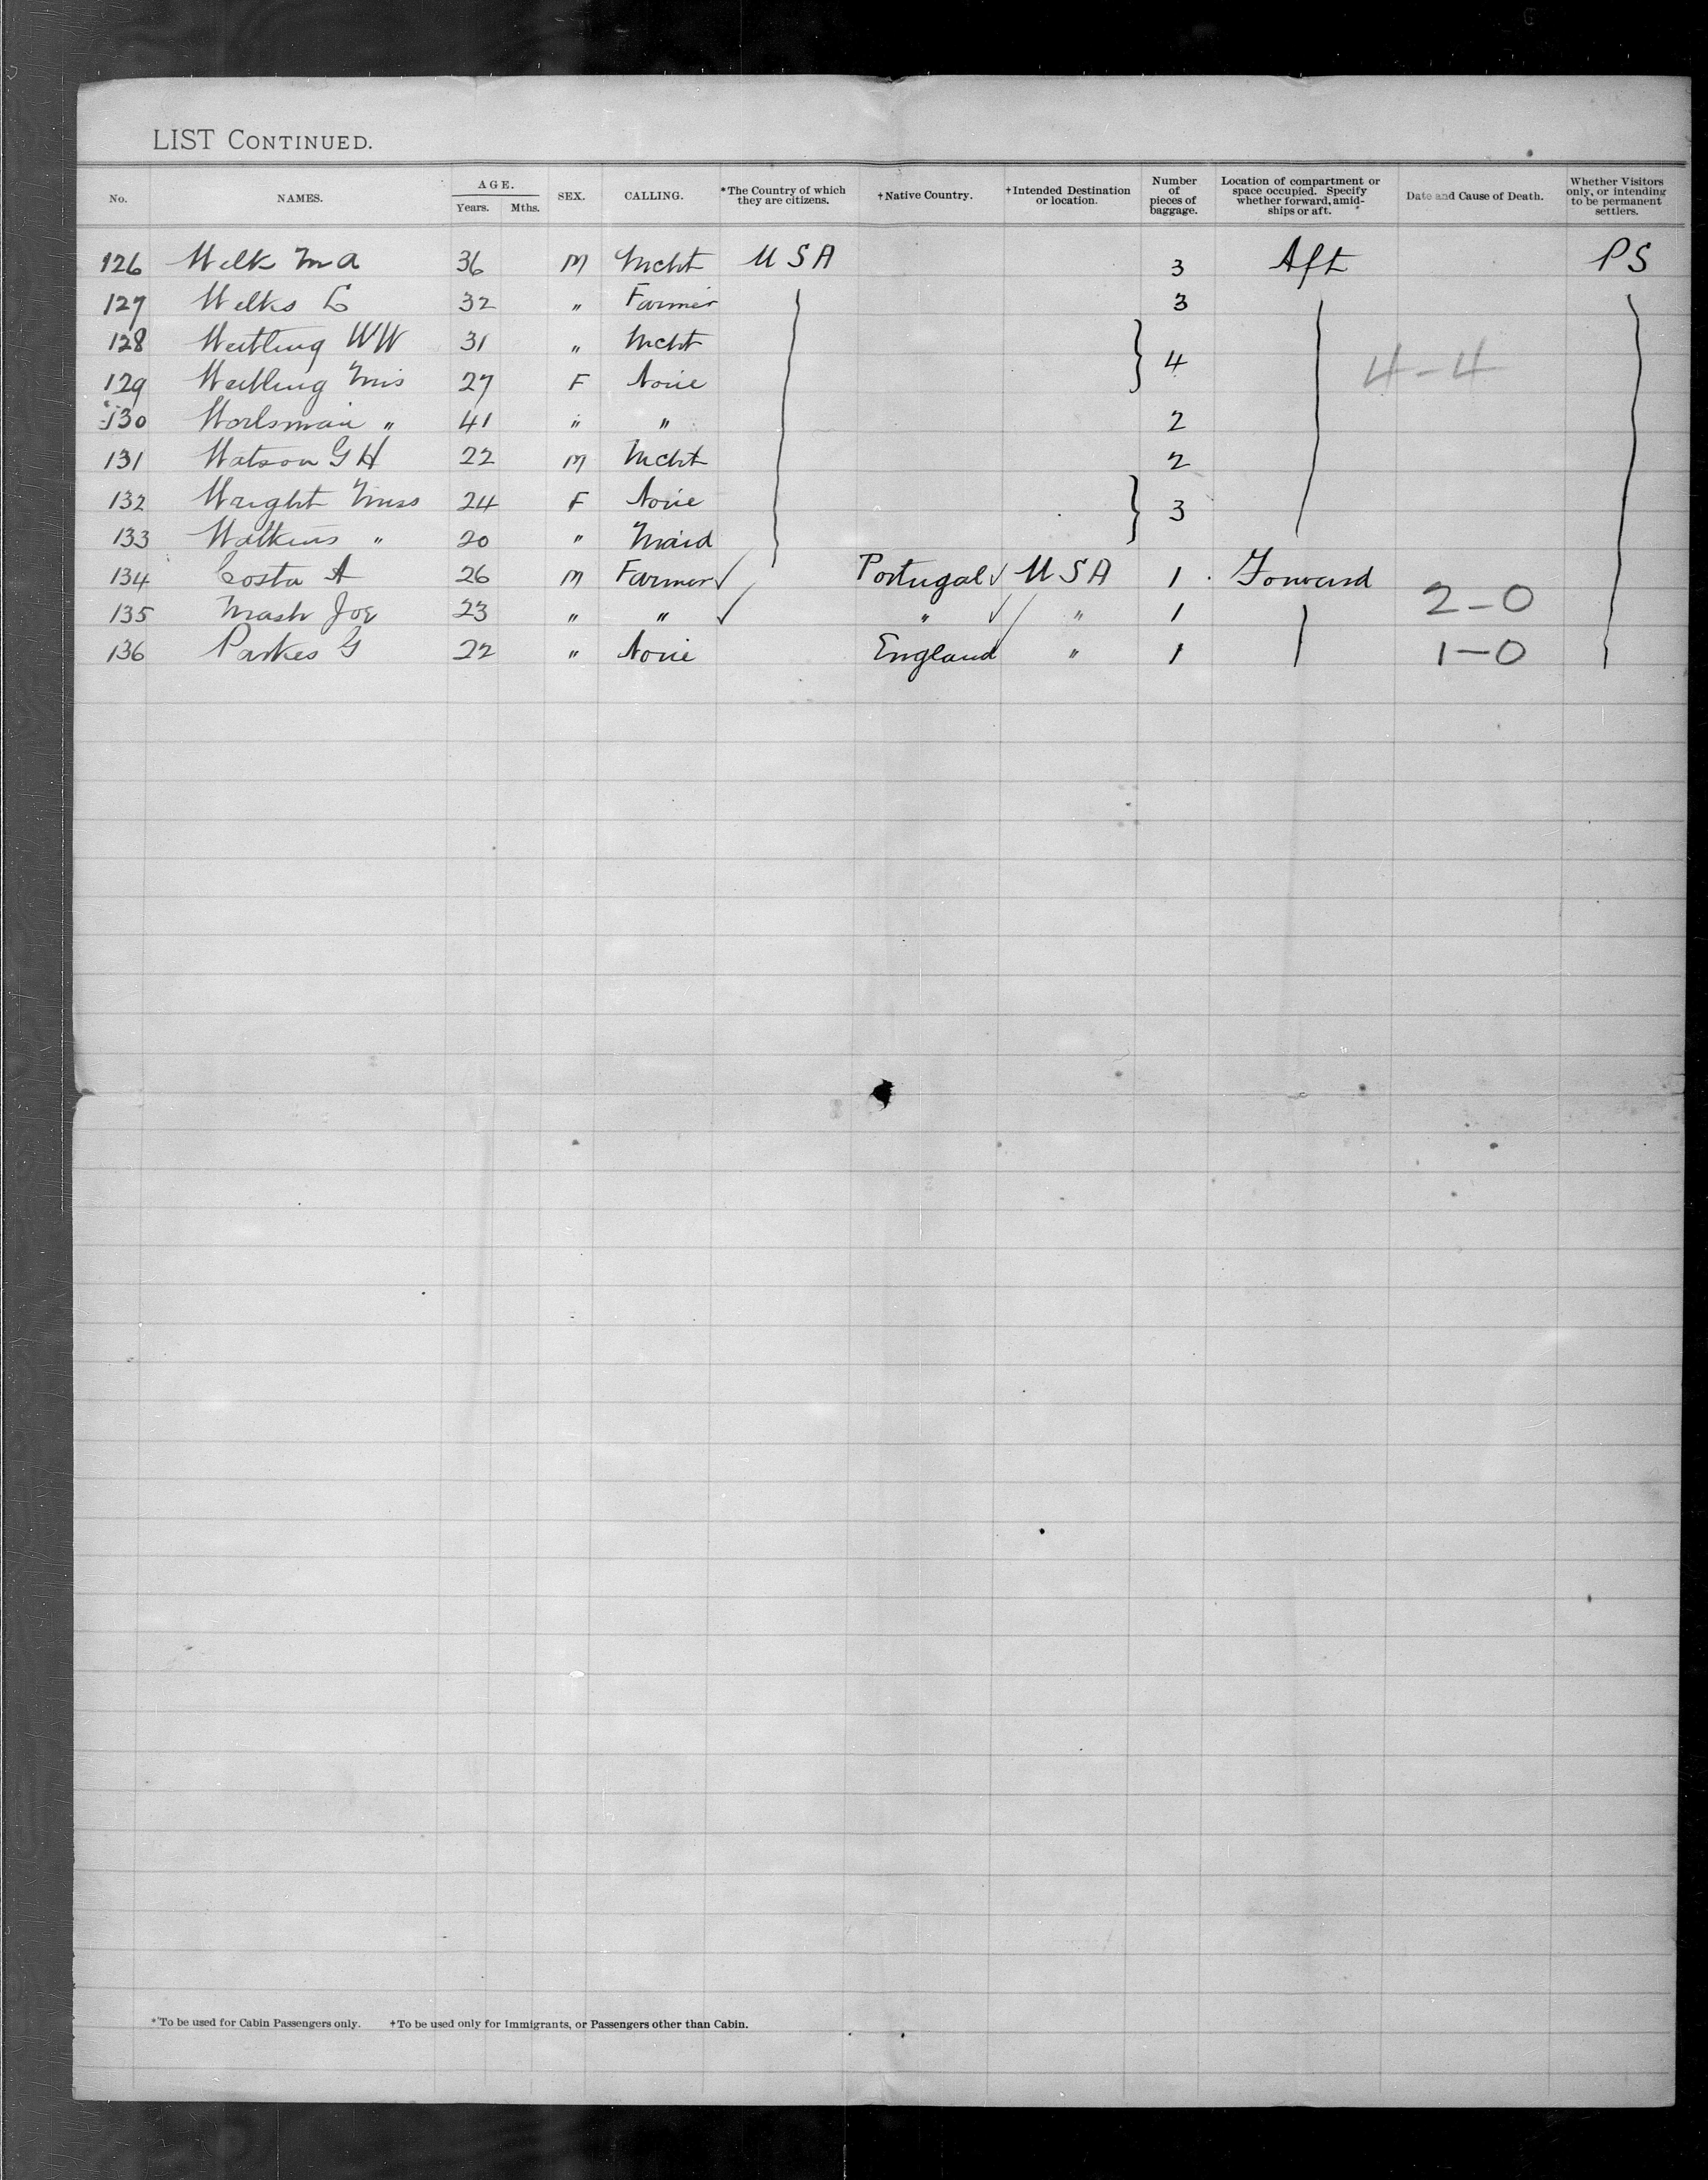 LIST CONTINUED.
No. NAMES. AGE. Years. Mths. SEX. CALLING. *The Country of which they are citizens. †Native Country. †Intended Destination or location. Number of pieces of baggage. Location of compartment or space occupied. Specify whether forward, amidships or aft. Date and Cause of Death. Whether Visitors only, or intending to be permanent settlers.
126 Welk M A 36 M Mcht U S A 3 Aft P S
127 Welks L 32 " Farmer 3
128 Westling WW 31 " Mcht } 4 4-4
129 Westling Mrs 27 F None
130 Worlsman " 41 " " 2
131 Watson G H 22 M Mcht 2
132 Wright Miss 24 F None } 3
133 Watkins " 20 " Maid
134 Costa A 26 M Farmer ✓ Portugal ✓ U S A 1 Forward
135 Mash Joe 23 " " ✓ " ✓ " 1 2-0
136 Parkes G 22 " None England " 1 1-0
*To be used for Cabin Passengers only. †To be used only for Immigrants, or Passengers other than Cabin.